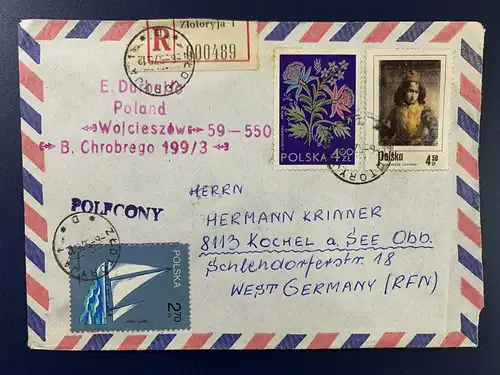 Złotoryja 1
R
000489
E. Du
Poland
Wojcieszów 59-550
B. Chrobrego 199/3
POLECONY
POLSKA 4.00 ZŁ
Polska 4.50 zł
POLSKA 2.70 zł
HERRN
HERMANN KRINNER
8113 KOCHEL a. SEE Obb.
Schlehdorferstr. 18
WEST GERMANY (RFN)